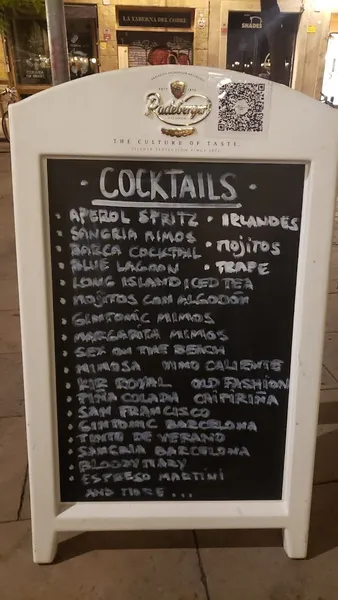 LA TAVERNA DEL COBRE
Radeberger
THE CULTURE OF TASTE.
· COCKTAILS ·
• APEROL SPRITZ • IRLANDES
• SANGRIA MIMOS
• BARCA COCKTAIL • MOJITOS
• BLUE LAGOON • TRAPE
• LONG ISLAND ICED TEA
• MOJITOS CON ALGODON
• GINTONIC MIMOS
• MARGARITA MIMOS
• SEX ON THE BEACH
• MIMOSA VINO CALIENTE
• KIR ROYAL OLD FASHION
• PIÑA COLADA CAIPIRIÑA
• SAN FRANCISCO
• GINTONIC BARCELONA
• TINTO DE VERANO
• SANGRIA BARCELONA
• BLOODY MARY
• ESPRESO MARTINI
AND MORE ...